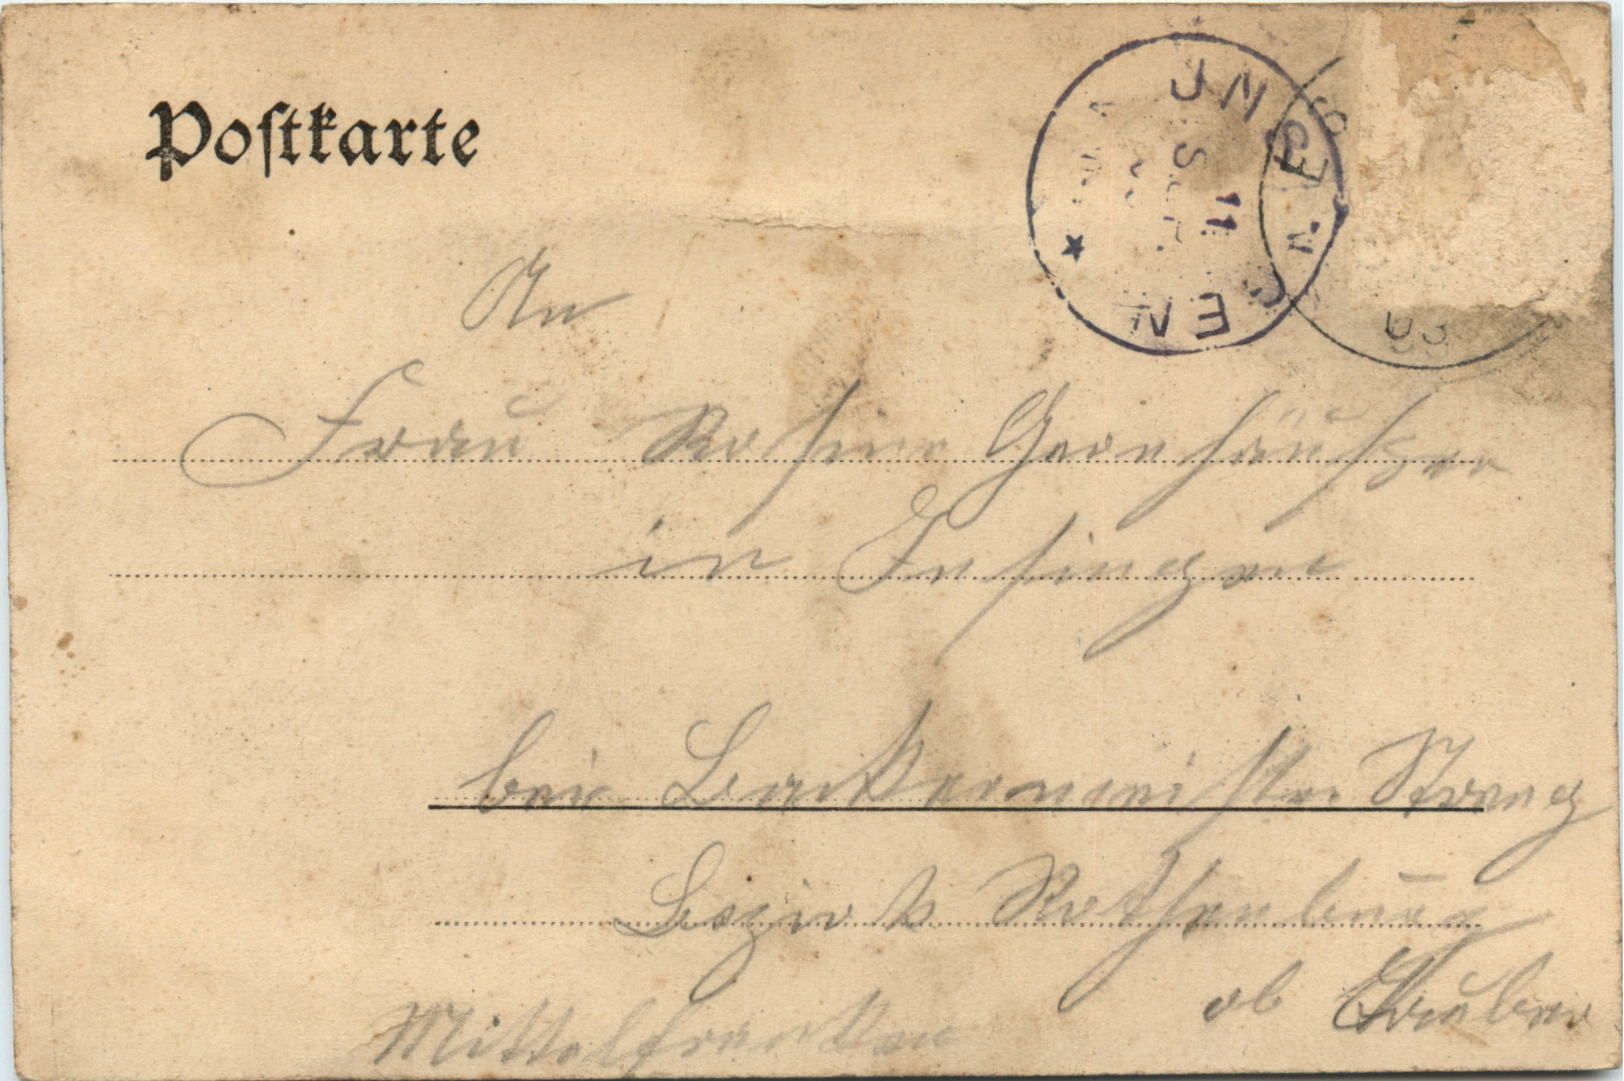 Postkarte
JNSINGEN
11
SEP.
03
An
Frau Rosine Gernhäußer
in Insingen
bei Backermeister Strang
Bezirk Rothenburg
ob Tauber
Mittelfranken